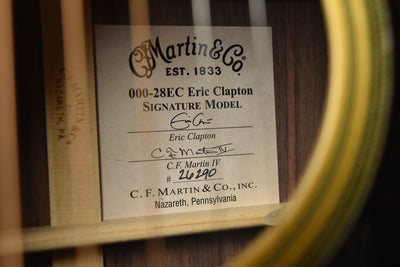 C.F. Martin & Co.
EST. 1833
000-28EC Eric Clapton
SIGNATURE MODEL
Eric Clapton
C.F. Martin IV
C. F. Martin IV
# 26290
C. F. MARTIN & CO., INC.
Nazareth, Pennsylvania
C. F. MARTIN & CO.
NAZARETH, PA.